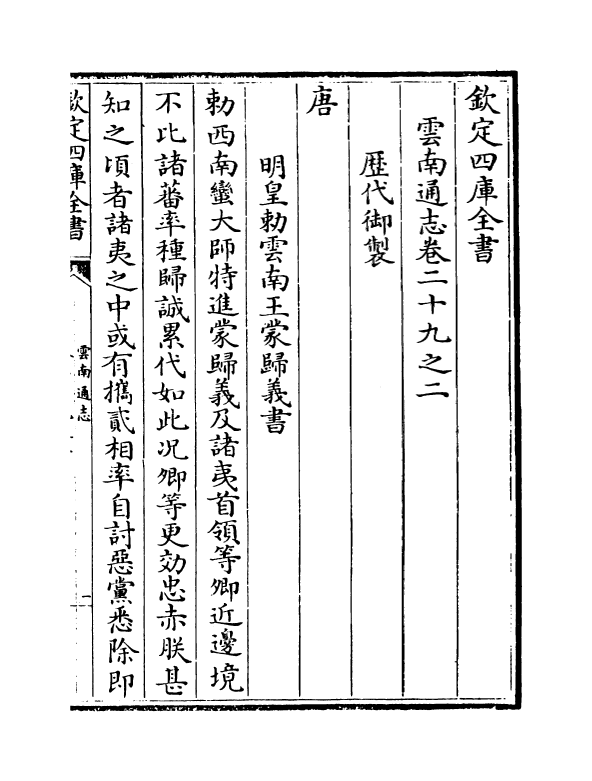 欽定四庫全書
雲南通志卷二十九之二
歴代御製
唐
明皇勅雲南王蒙歸義書
勅西南蠻大師特進蒙歸義及諸夷首領等卿近邊境
不比諸蕃率種歸誠累代如此况卿等更効忠赤朕甚
知之頃者諸夷之中或有攜貳相率自討惡黨悉除即
欽定四庫全書
雲南通志
一